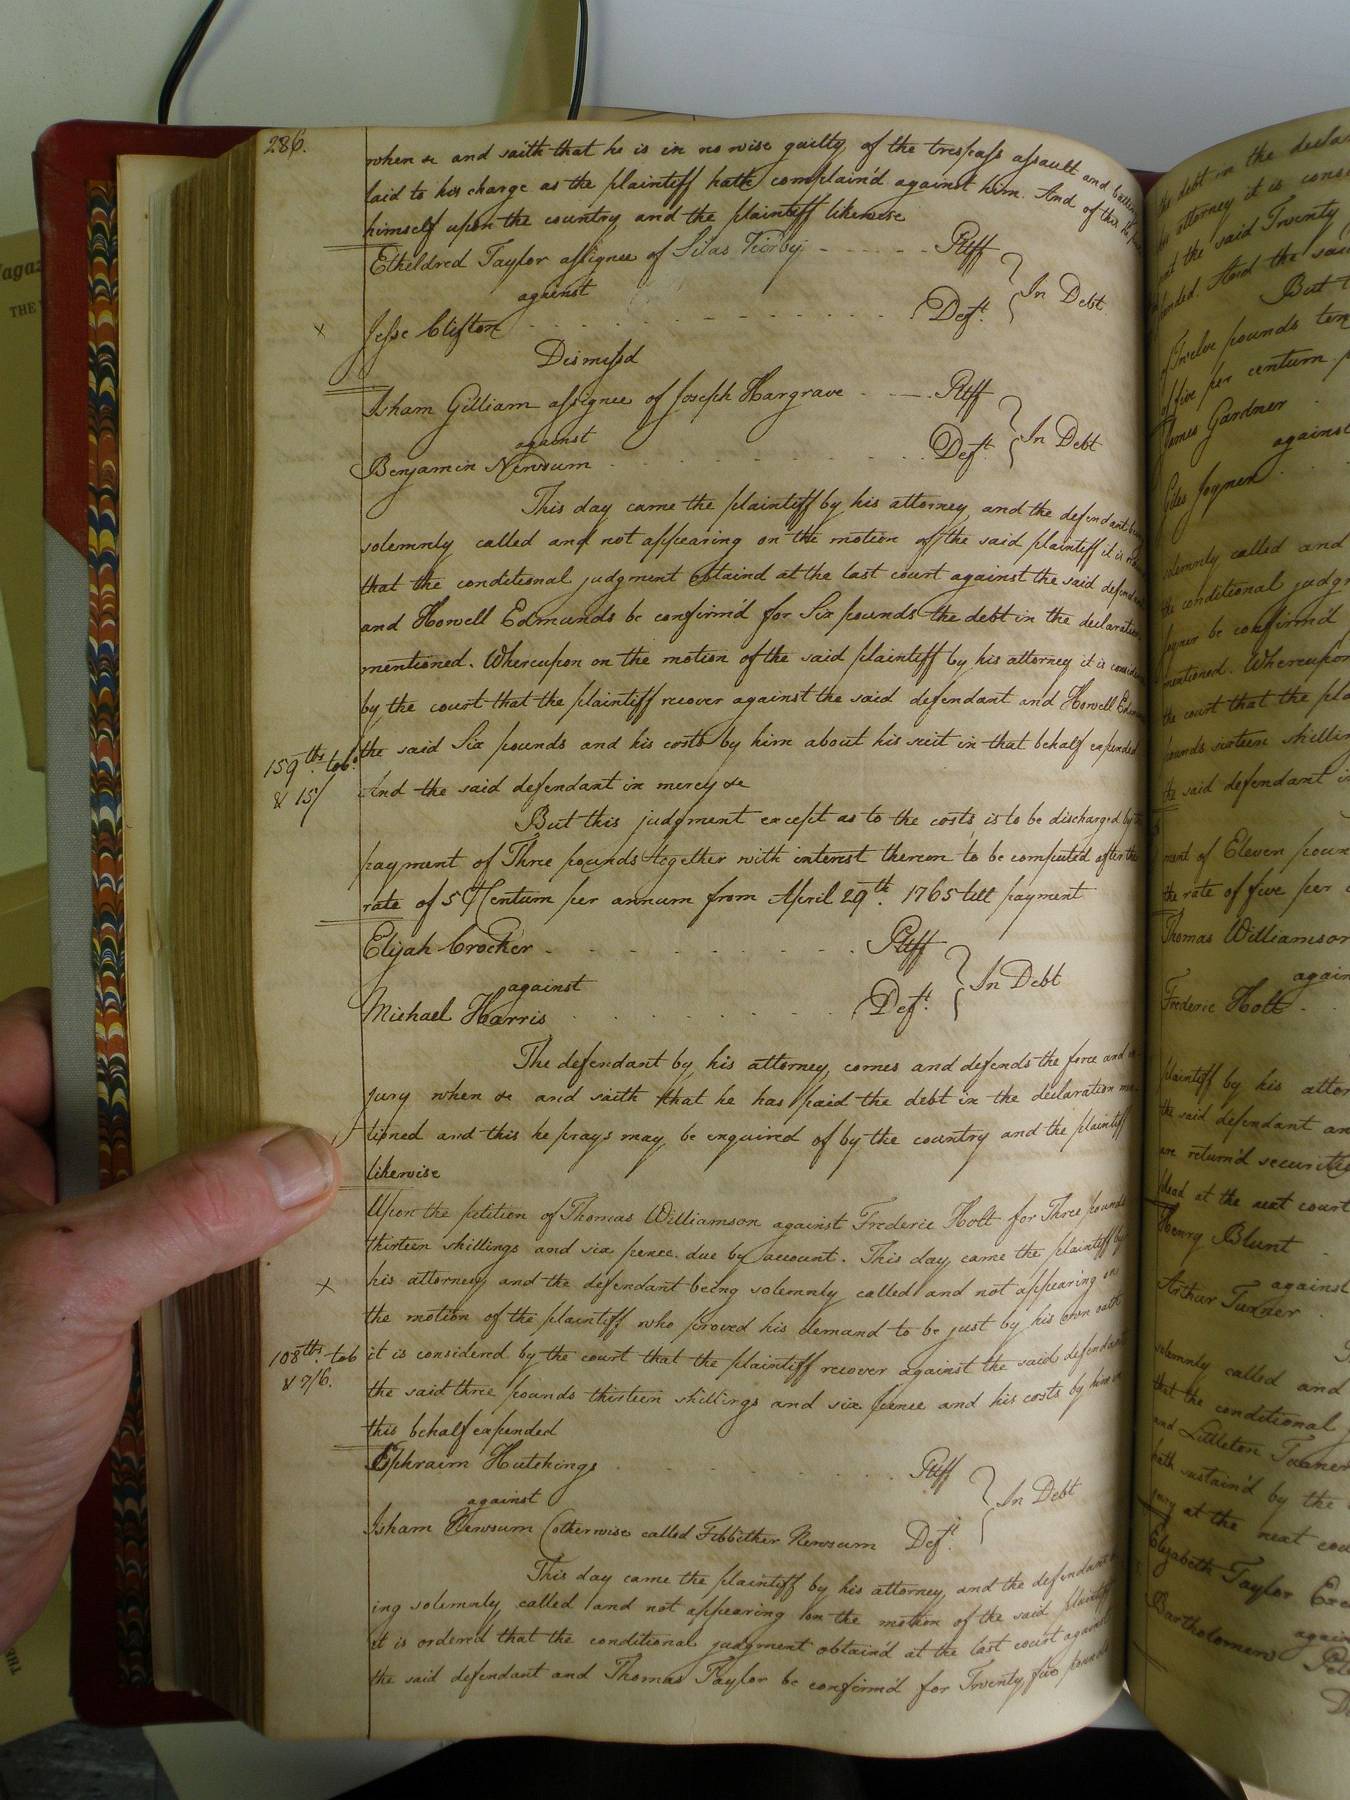 286.
when &c and saith that he is in no wise guilty of the trespass assault and
laid to his charge as the plaintiff hath complain'd against him. And of this he puts
himself upon the country and the plaintiff likewise
Etheldred Taylor assignee of Silas Kirby Pltff
against
In Debt
Jesse Clifton Deft.
x
Dismissd
Isham Gilliam assignee of Joseph Hargrave Pltff
against
In Debt
Benjamin Newsum Deft.
This day came the plaintiff by his attorney and the defendant
solemnly called and not appearing on the motion of the said plaintiff it is
that the conditional judgment obtaind at the last court against the said
and Howell Edmunds be confirm'd for Six pounds the debt in the declaration
mentioned. Whereupon on the motion of the said plaintiff by his attorney it is
by the court that the plaintiff recover against the said defendant and Howell
the said Six pounds and his costs by him about his suit in that behalf expended
159 ths. tobo.
& 15/
And the said defendant in mercy &c
But this judgment except as to the costs is to be discharged by the
payment of Three pounds together with interest thereon to be computed after the
rate of 5 Centum per annum from April 29th. 1765 till payment
Elijah Crocker Pltff
against
In Debt
Michael Harris Deft.
The defendant by his attorney comes and defends the force and in
jury when &c and saith that he has paid the debt in the declaration men
tioned and this he prays may be enquired of by the country and the plaintiff
likewise
Upon the petition of Thomas Williamson against Frederic Holt for Three pounds
thirteen shillings and six pence due by account. This day came the plaintiff by
x
his attorney and the defendant being solemnly called and not appearing on
the motion of the plaintiff who proved his demand to be just by his own oath
108 ths. tob
& 7/6.
it is considered by the court that the plaintiff recover against the said defendant
the said three pounds thirteen shillings and six pence and his costs by him in
this behalf expended
Ephraim Hutchings Pltff
against
In Debt
Isham Newsum (otherwise called Newsum Deft.
This day came the plaintiff by his attorney and the defendant
ing solemnly called and not appearing on the motion of the said plaintiff
it is ordered that the conditional judgment obtain'd at the last court against
the said defendant and Thomas Taylor be confirm'd for Twenty five pounds
the debt in the
attorney it is
the said Twenty
And the said
But
Twelve pounds ten
of five per centum
James Gardner
against
Giles Joyner
solemnly called and
the conditional
Joyner be confirm'd
mentioned. Whereupon
the court that the
pounds sixteen
the said defendant
ment of Eleven
the rate of five per
Thomas Williamson
Frederic Holt
plaintiff by his
the said defendant
are return'd security
plead at the next court
Henry Blunt
against
Arthur Turner
solemnly called and
that the conditional
and Littleton Turner
hath sustain'd by the
jury at the next
Elizabeth Taylor
Bartholomew